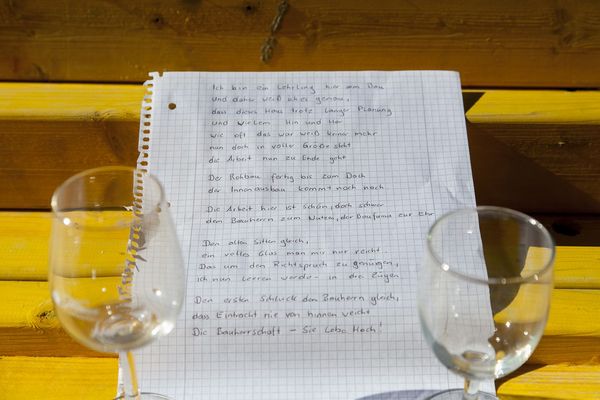 Ich bin ein Lehrling hier am Bau
und daher weiß ich es genau,
dass dieses Haus trotz langer Planung
und vielem Hin und Her
wie oft das war weiß keiner mehr
nun doch in voller Größe steht
die Arbeit nun zu Ende geht
Der Rohbau fertig bis zum Dach
der Innenausbau kommt noch nach
Die Arbeit hier ist schön, doch schwer
dem Bauherrn zum Nutzen, der Baufirma zur Ehr
Den alten Sitten gleich,
ein volles Glas man mir nur reicht
Das um den Richtspruch zu genügen,
ich nun leeren werde - in drei Zügen
Den ersten Schluck den Bauherrn gleich,
dass Eintracht nie von hinnen weicht
Die Bauherrschaft - Sie Lebe Hoch!